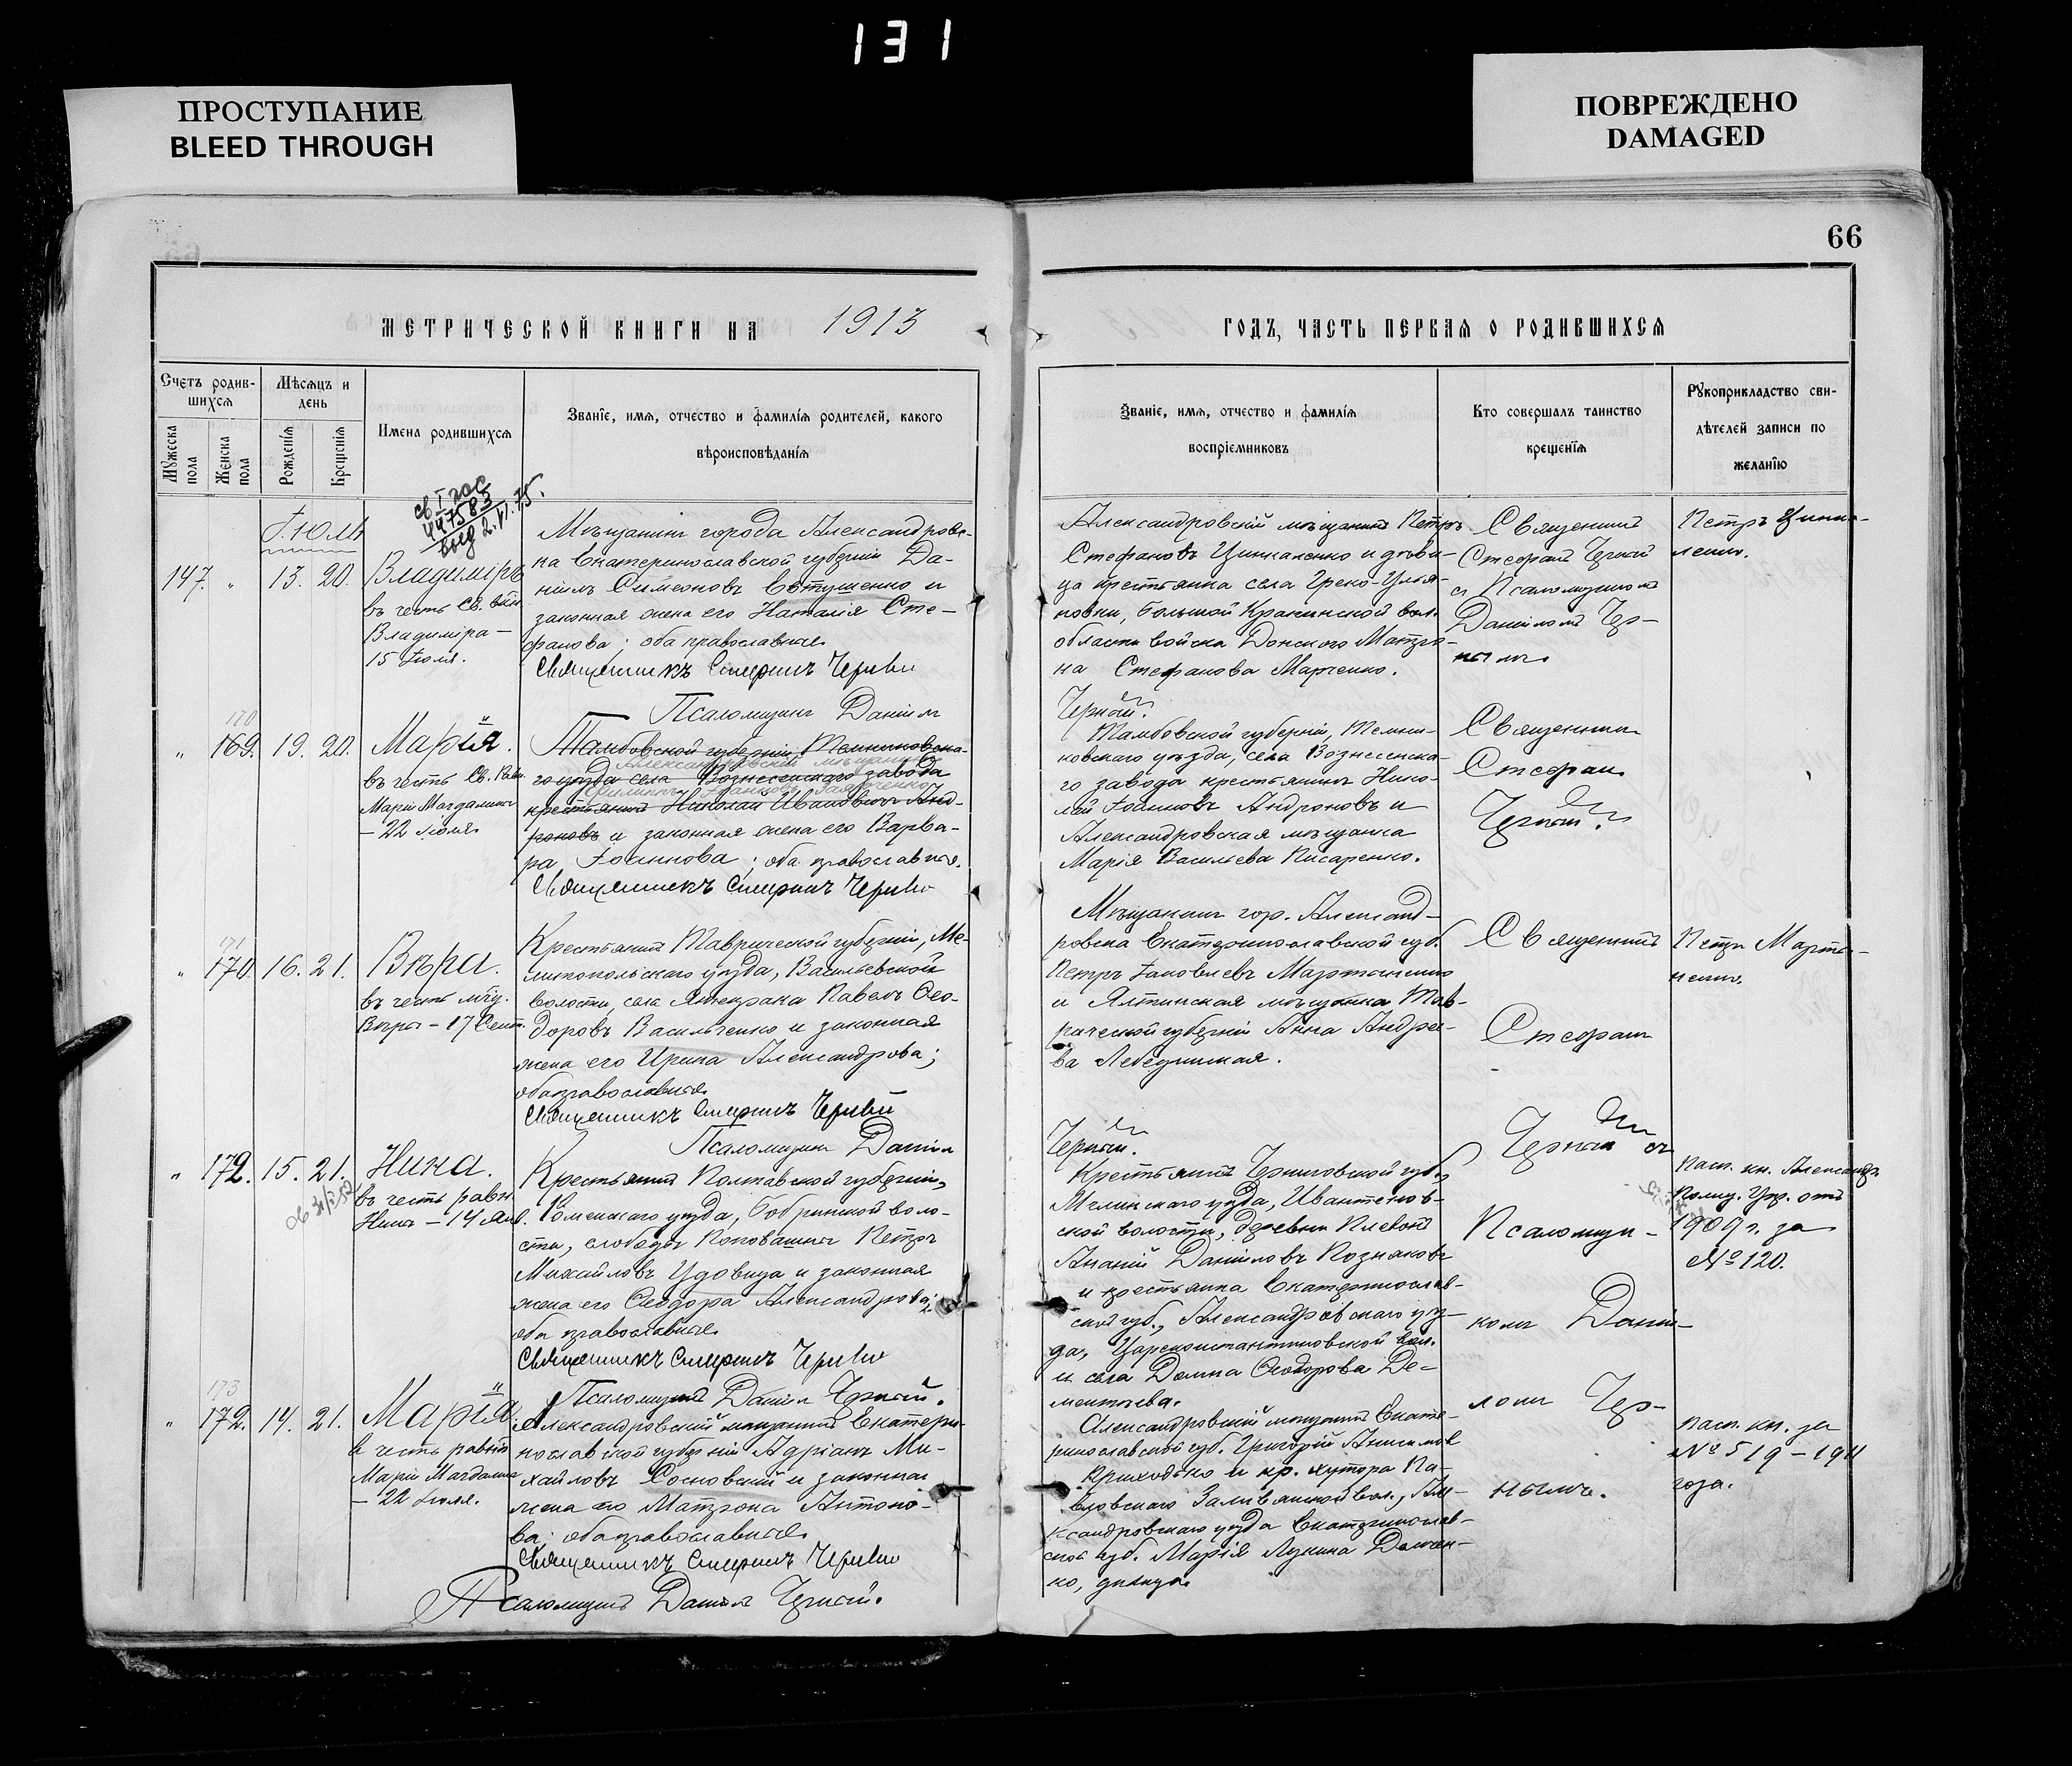 131
ПРОСТУПАНИЕ
BLEED THROUGH
ПОВРЕЖДЕНО
DAMAGED
66
МЕТРИЧЕСКОЙ КНИГИ НА 1913
ГОДЪ, ЧАСТЬ ПЕРВАЯ О РОДИВШИХСЯ
Счетъ родив-
шихся
Мужеска пола
Женска пола
Мѣсяцъ и
день
Рожденія
Крещенія
Имена родившихся
Званіе, имя, отчество и фамилія родителей, какого
вѣроисповѣданія
Званіе, имя, отчество и фамилія
воспріемниковъ
Кто совершалъ таинство
крещенія
Рукоприкладство сви-
дѣтелей записи по
желанію
Іюль
св I
447583
2.VI.75.
147. " 13. 20.
Владиміръ
въ честь Св.
Владиміра –
15 Іюля.
Мѣщанинъ города Александровс-
ка Екатеринославской губерніи Да-
ніилъ Симеоновъ Евтушенко и
законная жена его Наталія Сте-
фанова; оба православные.
Священникъ Стефанъ Черный
Псаломщикъ Даніилъ
Черный.
Александровскій мѣщанинъ Петръ
Стефановъ Цинкаленко и дѣви-
ца крестьянка села Греко-Улья-
новки, Большой Крепинской вол.
области войска Донского Матро-
на Стефанова Марченко.
Священникъ
Стефанъ Черный
съ Псаломщикомъ
Даніиломъ Чер-
нымъ.
Петръ Цинка-
ленко.
170
" 169. 19. 20.
Марія.
въ честь Св. Равн.
Маріи Магдалины
– 22 Іюля
Тамбовской губерніи Темниковска-
Александровскій мѣщанинъ
го уѣзда села Вознесенскаго завода
крестьянинъ Николай Ивановичъ Анд-
роновъ и законная жена его Варва-
ра Іоаннова; оба православные.
Священникъ Стефанъ Черный
Тамбовской губерніи, Темни-
ковскаго уѣзда, села Вознесенска-
го завода крестьянинъ Нико-
лай Іоанновъ Андроновъ и
Александровская мѣщанка
Марія Васильева Писаренко.
Священникъ
Стефанъ
Черный.
171
" 170. 16. 21.
Вѣра.
въ честь мчц.
Вѣры – 17 Сент.
Крестьянинъ Таврической губерніи, Ме-
литопольскаго уѣзда, Васильевской
волости, села Янчекрака Павелъ Ѳео-
доровъ Васильченко и законная
жена его Ирина Александрова;
оба православные.
Священникъ Стефанъ Черный
Псаломщикъ Даніилъ
Черный.
Мѣщанинъ гор. Александ-
ровска Екатеринославской губ.
Петръ Іаковлевъ Мартыненко
и Ялтинская мѣщанка Тав-
рической губерніи Анна Андрее-
ва Лебединская.
Священникъ
Стефанъ
Черный съ
Псаломщи-
комъ Даніи-
ломъ Чер-
нымъ.
Петръ Марты-
ненко.
" 172. 15. 21.
Нина.
въ честь равн.
Нины – 14 Янв.
Крестьянинъ Полтавской губерніи,
Роменскаго уѣзда, Бобринской воло-
сти, слободы Поповщины Петръ
Михайловъ Удовица и законная
жена его Ѳеодора Александрова;
оба православные.
Священникъ Стефанъ Черный
Псаломщикъ Даніилъ Черный.
Крестьянинъ Черниговской губ.,
Мглинскаго уѣзда, Ивантенков-
ской волости, деревни Плевокъ
Ананій Даніиловъ Позняковъ
и крестьянка Екатеринослав-
ской губ., Александровскаго уѣз-
да, Цареконстантиновской вол.
и села Домна Ѳеодорова Де-
ментьева.
Пасп. кн. Александр.
Полиц. Упр. отъ
1909 г. за
№ 120.
173
" 172. 14. 21.
Марія.
въ честь равн.
Маріи Магдалины
– 22 Іюля.
Александровскій мѣщанинъ Екатери-
нославской губерніи Адріанъ Ми-
хайловъ Сосновскій и законная
жена его Матрона Антоно-
ва; оба православные.
Священникъ Стефанъ Черный
Псаломщикъ Даніилъ Черный.
Александровскій мѣщанинъ Екате-
ринославской губ. Григорій Анисимовъ
Приходько и кр. хутора Па-
вловскаго Заливянской вол., Але-
ксандровскаго уѣзда Екатеринослав-
ской губ. Марія Лукина Доможен-
ко, дѣвица.
Пасп. кн. за
№ 519 – 1911
года.